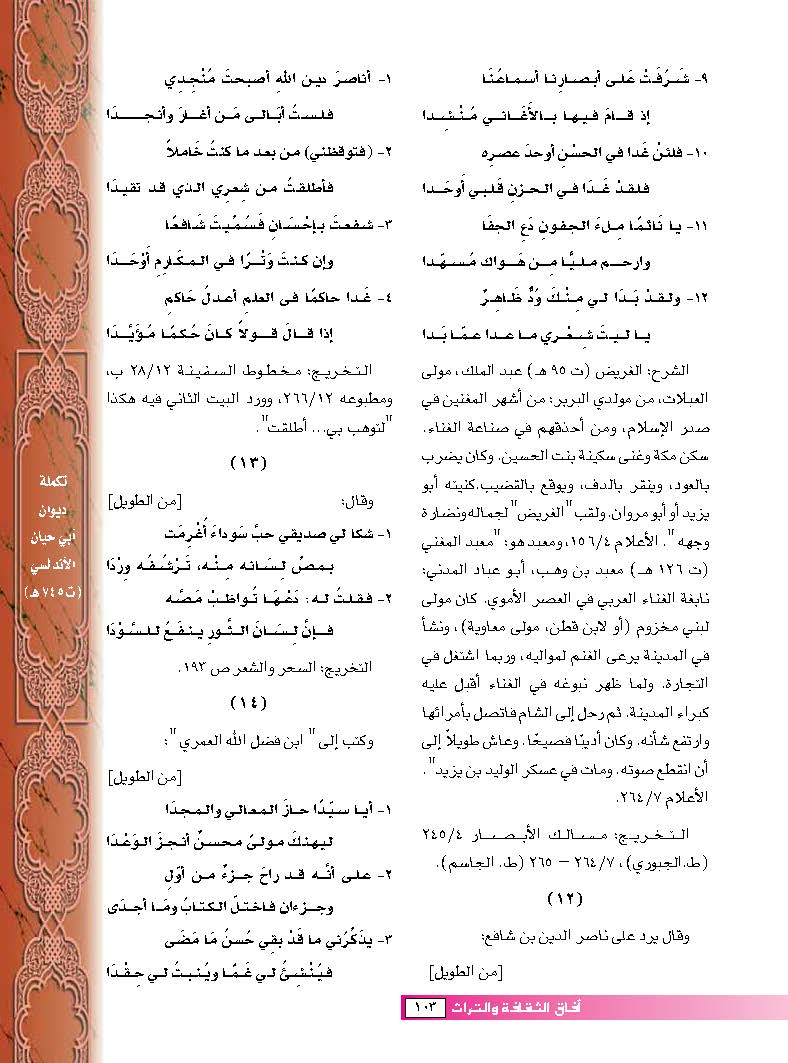 ٩- شَـرُفَـتْ عَلـى أبـصـارِنـا أسـمـاعُـنَـا
إذ قــامَ فـيـهـا بــالأَغَــانــي مُـنْـشِـدا
١٠- فلئنْ غَدا في الحسْنِ أوحدَ عصرِه
فلقدْ غَـدَا في الـحـزنِ قَلبـي أَوحَــدا
١١- يا نَائمًا مِلءَ الجفونِ دَعِ الجفَا
وارحـــم مـلـيًّـا مــن هَـــواك مُـسـهّـدا
١٢- ولـقـدْ بَـدَا لـي مِـنْـكَ وُدٌّ ظَـاهِـرٌ
يـا لـيـتَ شِـعْـري مـا عـدا عـمّـا بَـدا
الشرح: الغريض (ت ٩٥ هـ) عبد الملك، مولى
العبلات، من مولدي البربر: من أشهر المغنين في
صدر الإسلام، ومن أحذقهم في صناعة الغناء.
سكن مكة وغنى سكينة بنت الحسين. وكان يضرب
بالعود، وينقر بالدف، ويوقع بالقضيب.كنيته أبو
يزيد أو أبو مروان. ولقب "الغريض" لجماله ونضارة
وجهه". الأعلام ١٥٦/٤، ومعبد هو: "معبد المغني
(ت ١٢٦ هـ) معبد بن وهب، أبو عباد المدني:
نابغة الغناء العربي في العصر الأموي. كان مولى
لبني مخزوم (أو لابن قطن، مولى معاوية)، ونشأ
في المدينة يرعى الغنم لمواليه، وربما اشتغل في
التجارة. ولما ظهر نبوغه في الغناء أقبل عليه
كبراء المدينة. ثم رحل إلى الشام فاتصل بأمرائها
وارتفع شأنه. وكان أديبًا فصيحًا. وعاش طويلاً إلى
أن انقطع صوته. ومات في عسكر الوليد بن يزيد".
الأعلام ٢٦٤/٧.
التخريج: مسالك الأبصار ٢٤٥/٤
(ط.الجبوري)، ٢٦٤/٧ – ٢٦٥ (ط. الجاسم).
(١٢)
وقال يرد على ناصر الدين بن شافع:
[من الطويل]
١- أناصرَ دينِ اللهِ أصبحتَ مُنْجِدِي
فلستُ أُبَـالـى مَـن أغــارَ وأنـجــدَا
٢- (فتوقظني) من بعد ما كنتُ خَاملاً
فأطلقتُ مـن شِعرِي الـذي قد تقيدَا
٣- شفعتَ بـإحْسَـانٍ فَسُمِّيتَ شَـافعًـا
وإن كـنـتَ وَتْــرًا فـي الـمـكَـارِمِ أَوْحَــدَا
٤- غَـدا حاكمًا فى العلم أعدلُ حَاكمٍ
إذا قـالَ قــولاً كـانَ حُـكـمًـا مُـؤَيَّــدَا
التخريج: مخطوط السفينة ٢٨/١٢ ب،
ومطبوعه ٢٦٦/١٢، وورد البيت الثاني فيه هكذا
"لتوهب بي... أطلقت".
(١٣)
وقال: [من الطويل]
١- شكا لي صديقي حبَّ سَوداءَ أُغْرِمَت
بـمـصِّ لِـسَـانـه مـنـه، تَـرْشُـفُـه وِرْدَا
٢- فـقـلـتُ لـه: دَعْـهَـا تُـواظـبْ مَـصَّـه
فــإنَّ لِـسَـانَ الـثَّـورِ يـنـفَـعُ لـلـسَّـوْدَا
التخريج: السحر والشعر ص ١٩٣.
(١٤)
وكتب إلى "ابن فضل الله العمري":
[من الطويل]
١- أيـا سـيّـدًا حـازَ المعالي والمجدَا
ليهنكَ مولىً محسنٌ أنجزَ الـوَعْـدَا
٢- على أنَّـه قد راحَ جـزءٌ مـن أوّلٍ
وجــزءان فاختلّ الكتابُ ومَــا أجـدَى
٣- يذَكِّرُني ما قَدْ بقِي حُسنُ مَا مَضَى
فـيُـنْـشِـئُ لـي غَـمًّـا ويُـنـبـتُ لـي حِـقْـدَا
تكملة
ديوان
أبي حيان
الأندلسي
(ت ٧٤٥ هـ)
آفاق الثقافة والتراث ١٠٣